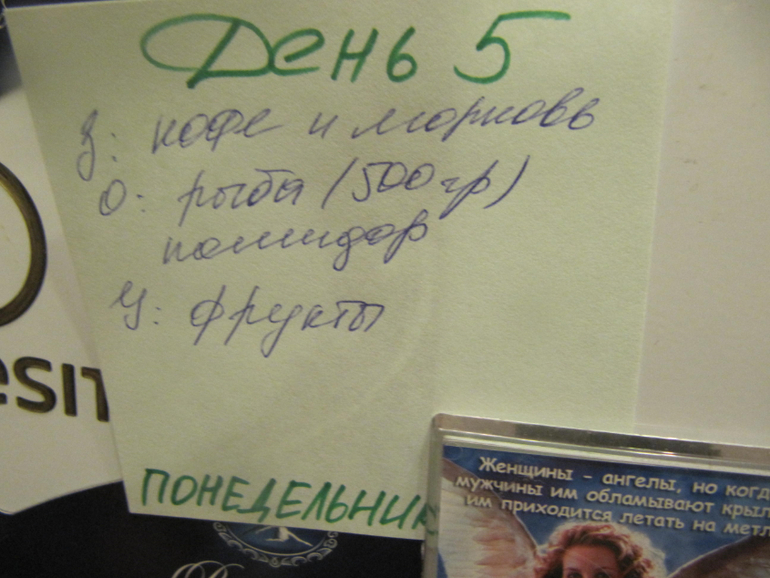 День 5
З: кофе и морковь
О: рыба (500 гр)
помидор
У: фрукты
ПОНЕДЕЛЬНИК
ESIT
Женщины - ангелы, но когд
мужчины им обламывают крыл
им приходится летать на метл